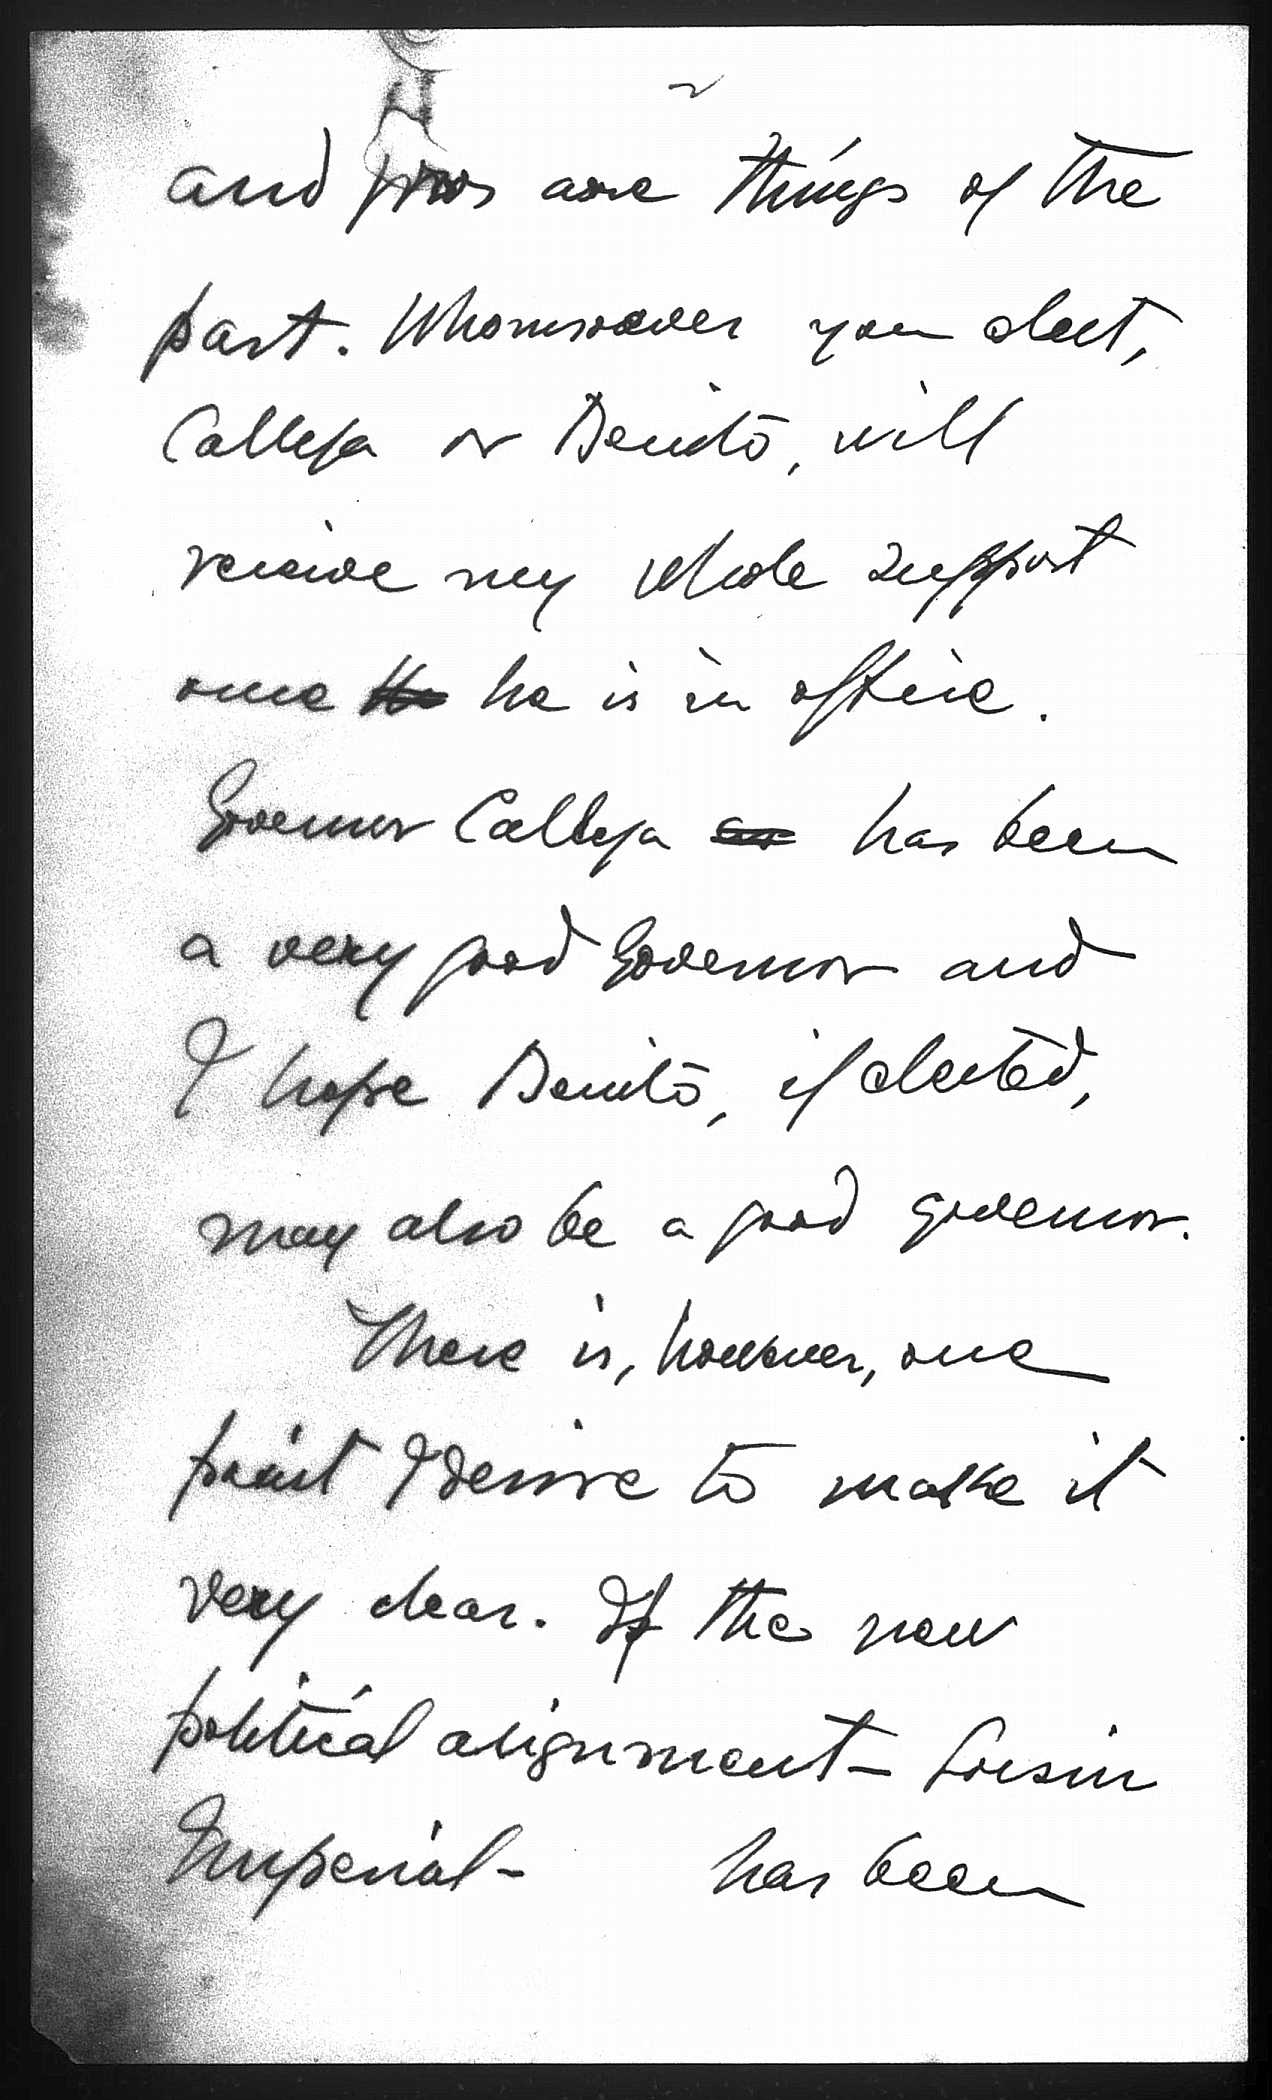 2
and are things of the
past. Whomsoever you elect,
Calleja or Benito, will
receive my whole support
once he is in office.
Governor Calleja has been
a very good Governor and
I hope Benito, if elected,
may also be a good governor.
There is, however, one
point I desire to make it
very clear. If the new
political alignment - Locsin
Imperial - has been